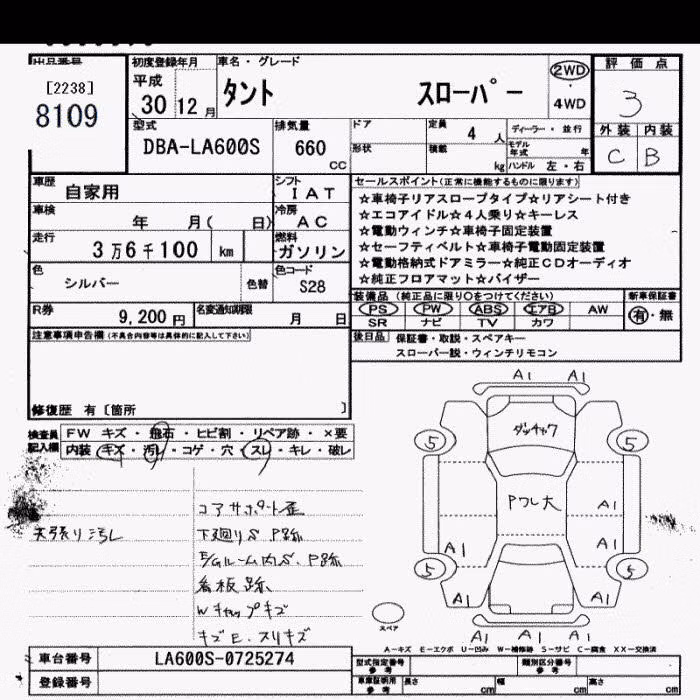 出品番号
[2238]
8109
初度登録年月
平成
30 12 月
車名・グレード
タント スローパー
2WD
・
4WD
評価点
3
外装 内装
C B
型式
DBA-LA600S
排気量
660
cc
ドア
形状
定員
4 人
積載
kg
ディーラー・並行
モデル年式 年
ハンドル 左・右
車歴
自家用
シフト
IAT
車検
年 月( 日)
冷房
AC
走行
3万6千100 km
燃料
ガソリン
色
シルバー
色替
色コード
S28
R券
9,200円
名変通知期限
月 日
セールスポイント(正常に機能するものに限ります)
☆車椅子リアスロープタイプ☆リアシート付き
☆エコアイドル☆4人乗り☆キーレス
☆電動ウィンチ☆車椅子固定装置
☆セーフティベルト☆車椅子電動固定装置
☆電動格納式ドアミラー☆純正CDオーディオ
☆純正フロアマット☆バイザー
装備品(純正品に限り○をつけてください)
PS PW ABS エアB AW
SR ナビ TV カワ
新車保証書
有・無
後日品
保証書・取説・スペアキー
スローパー説・ウィンチリモコン
注意事項申告欄(不具合内容等は具体的に記入して下さい)
修復歴 有〔箇所 〕
検査員記入欄
FW キズ・飛石・ヒビ割・リペア跡・×要
内装 キズ・汚レ・コゲ・穴・スレ・キレ・破レ
天張り汚レ
コアサポート歪
下廻りS P跡
E/Gルーム内S、P跡
看板跡
Wキャップキズ
キズE.スリキズ
A1 A1
ダッチャク
5 5
Pワレ大
A1
A1 A1
5 5
A1 A1
A1 A1 A1
スペア
A-キズ E-エクボ U-凹み W-補修跡 S-サビ C-腐食 XX-交換済
車台番号
LA600S-0725274
登録番号
型式指定番号
参考
類別区分番号
参考
車庫証明用
参考
長さ cm
幅 cm
高さ cm